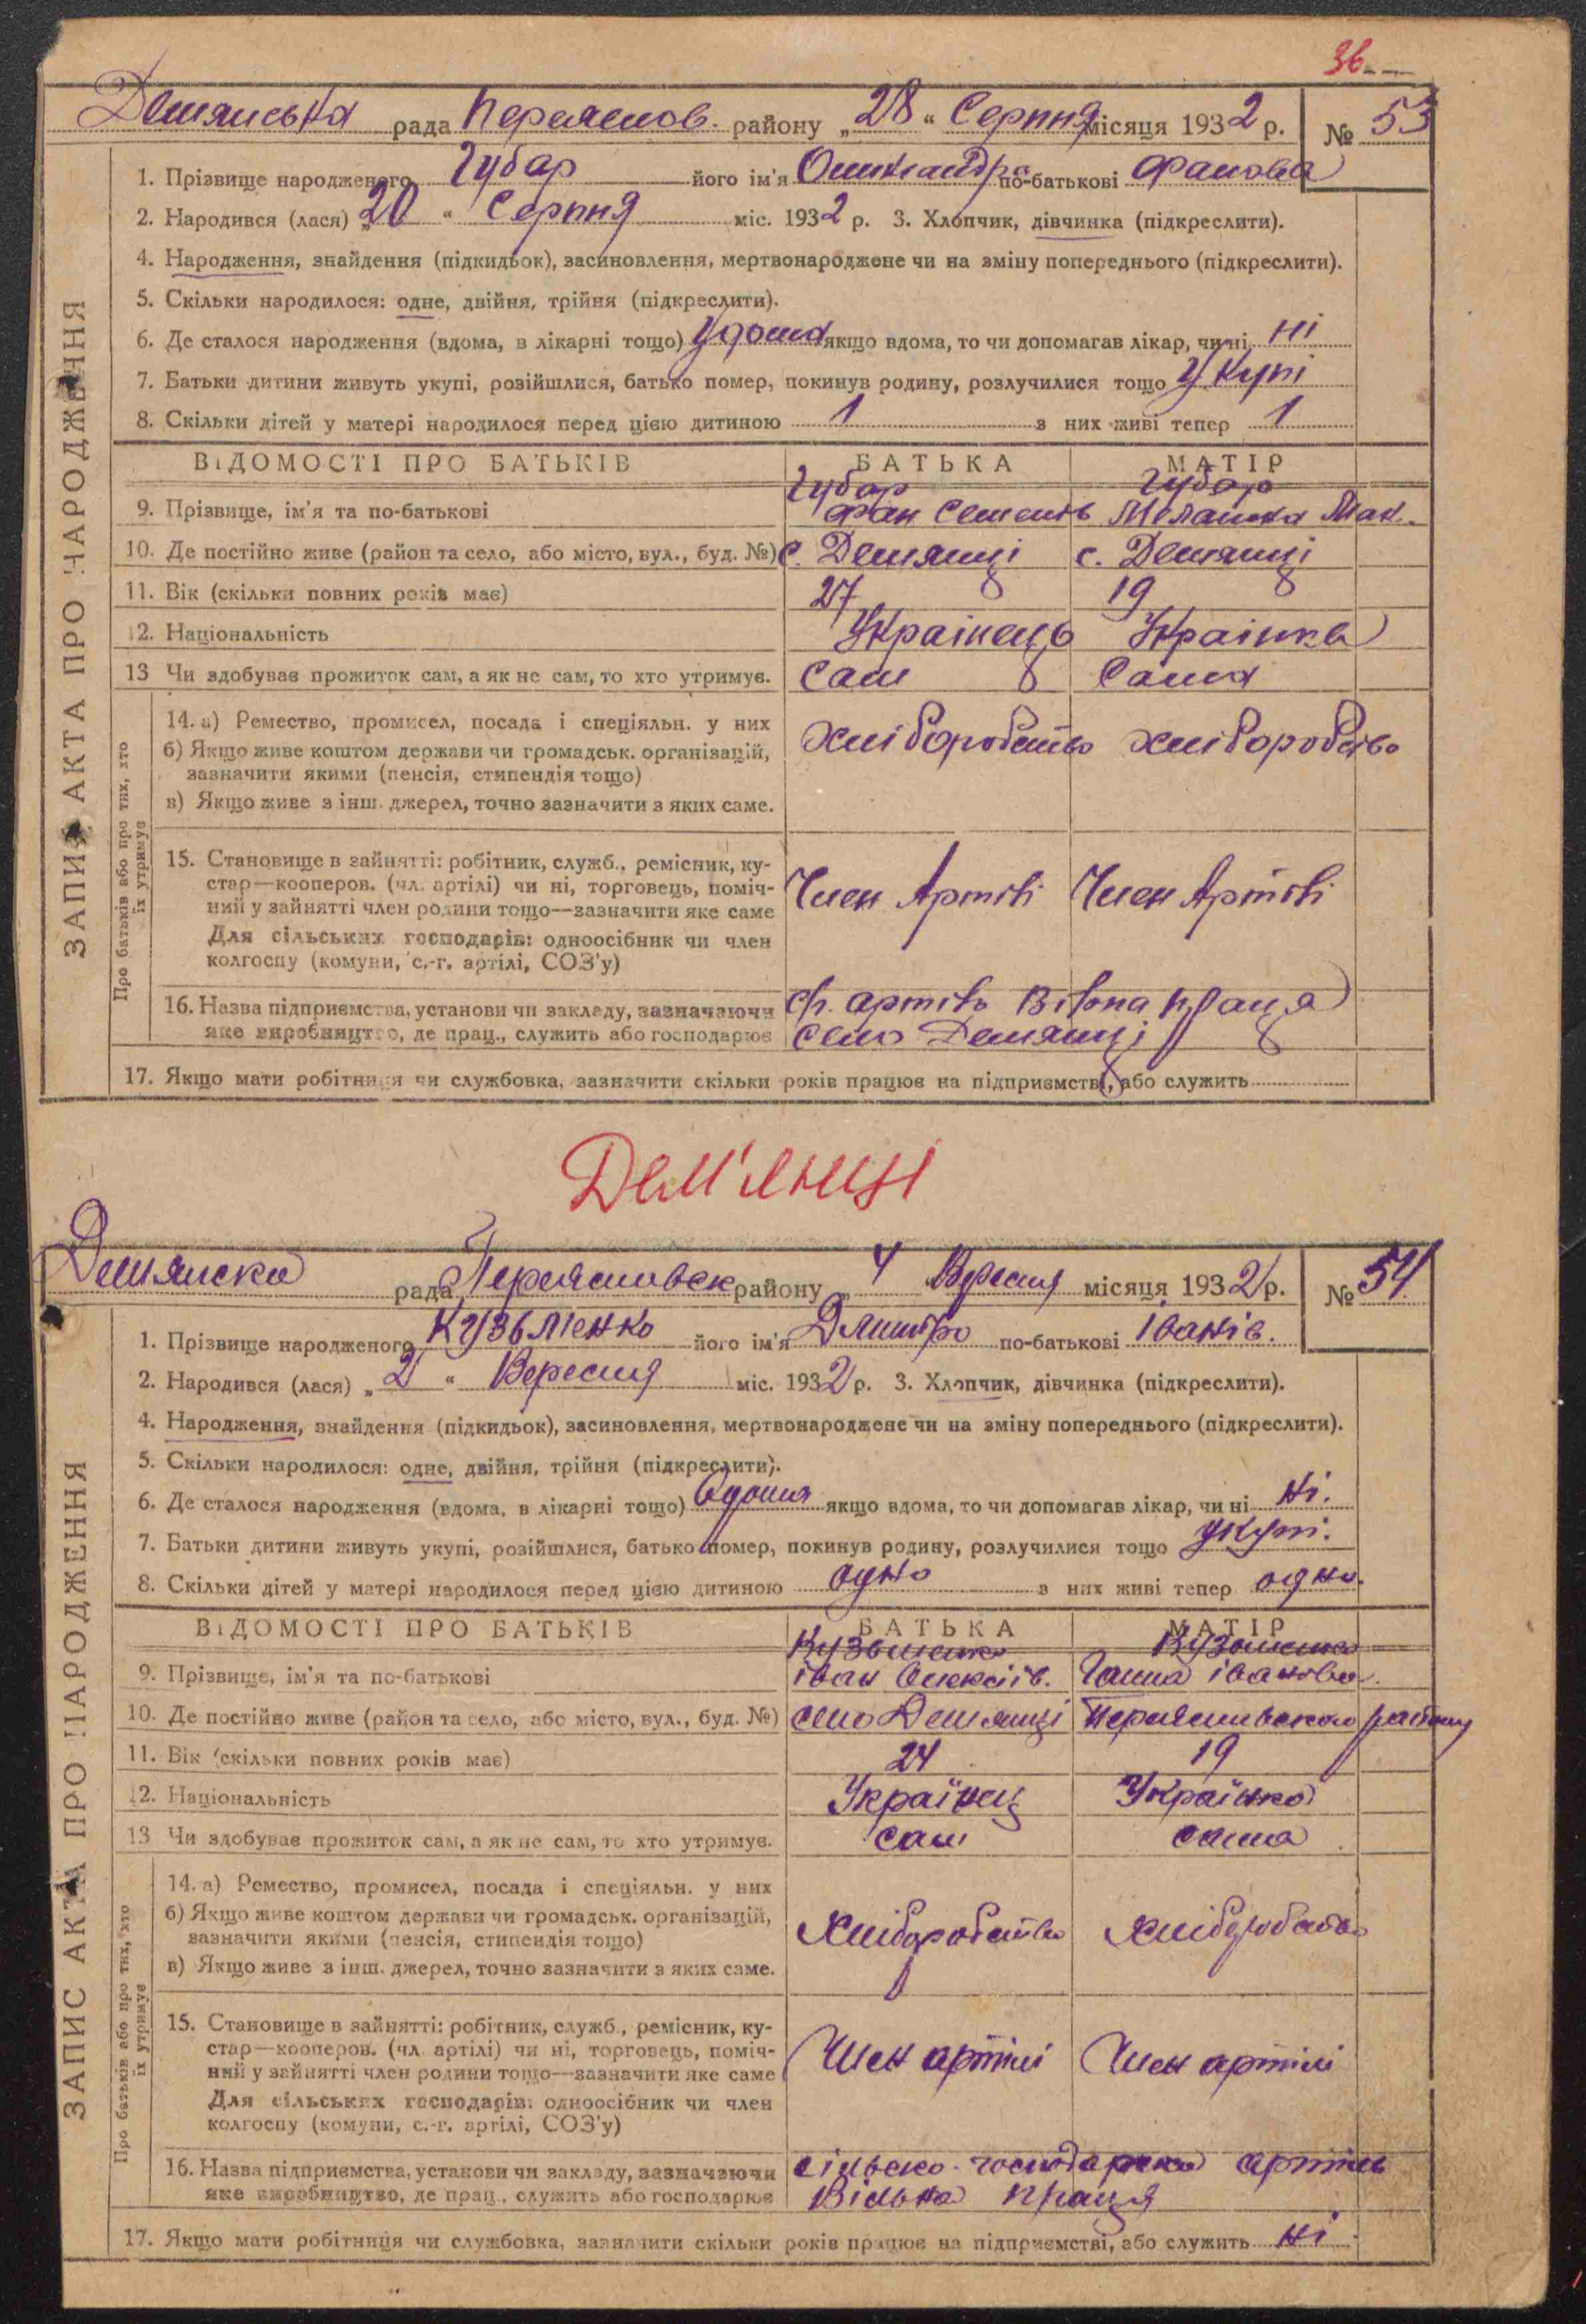 36
Демянська рада Переяслов. району „28“ Серпня місяця 1932 р. № 53
ЗАПИС АКТА ПРО НАРОДЖЕННЯ
1. Прізвище народженого Губар його ім'я Олександра по-батькові Фанова
2. Народився (лася) „20“ Серпня міс. 1932 р. 3. Хлопчик, дівчинка (підкреслити).
4. Народження, знайдення (підкидьок), засиновлення, мертвонароджене чи на зміну попереднього (підкреслити).
5. Скільки народилося: одне, двійня, трійня (підкреслити).
6. Де сталося народження (вдома, в лікарні тощо) Удома якщо вдома, то чи допомагав лікар, чи ні ні
7. Батьки дитини живуть укупі, розійшлися, батько помер, покинув родину, розлучилися тощо у Купі
8. Скільки дітей у матері народилося перед цією дитиною 1 з них живі тепер 1
ВІДОМОСТІ ПРО БАТЬКІВ БАТЬКА МАТІР
Губар Губар
9. Прізвище, ім'я та по-батькові Фан Семенів Мелашка Мак.
10. Де постійно живе (район та село, або місто, вул., буд. №) с. Демянці с. Демянці
11. Вік (скільки повних років має) 27 19
12. Національність Українець Українка
13 Чи здобуває прожиток сам, а як не сам, то хто утримує. Сам Сама
Про батьків або про тих, хто їх утримує
14. а) Ремество, промисел, посада і спеціяльн. у них хліборобство хліборобство
б) Якщо живе коштом держави чи громадськ. організацій,
зазначити якими (пенсія, стипендія тощо)
в) Якщо живе з інш. джерел, точно зазначити з яких саме.
15. Становище в зайнятті: робітник, служб., ремісник, ку-
стар—кооперов. (чл. артілі) чи ні, торговець, поміч- Член Артілі Член Артілі
ний у зайнятті член родини тощо—зазначити яке саме
Для сільських господарів: одноосібник чи член
колгоспу (комуни, с.-г. артілі, СОЗ'у)
16. Назва підприємства, установи чи закладу, зазначаючи артіль Вільна праця
яке виробництво, де прац., служить або господарює село Демянці
17. Якщо мати робітниця чи службовка, зазначити скільки років працює на підприємстві, або служить
Дем'янці
Демянска рада Переяславск району „4 Вересня місяця 1932 р. № 54
ЗАПИС АКТА ПРО НАРОДЖЕННЯ
1. Прізвище народженого Кузьменко його ім'я Дмитро по-батькові Іванів.
2. Народився (лася) „2“ Вересня міс. 1932 р. 3. Хлопчик, дівчинка (підкреслити).
4. Народження, знайдення (підкидьок), засиновлення, мертвонароджене чи на зміну попереднього (підкреслити).
5. Скільки народилося: одне, двійня, трійня (підкреслити).
6. Де сталося народження (вдома, в лікарні тощо) Вдома якщо вдома, то чи допомагав лікар, чи ні ні.
7. Батьки дитини живуть укупі, розійшлися, батько помер, покинув родину, розлучилися тощо укупі.
8. Скільки дітей у матері народилося перед цією дитиною одно з них живі тепер одно.
ВІДОМОСТІ ПРО БАТЬКІВ БАТЬКА МАТІР
Кузьменко Кузьменко
9. Прізвище, ім'я та по-батькові Іван Олексіїв. Ганна Іванова.
10. Де постійно живе (район та село, або місто, вул., буд. №) село Демянці Переяславського району
11. Вік (скільки повних років має) 24 19
12. Національність Українец Українка
13 Чи здобуває прожиток сам, а як не сам, то хто утримує. сам сама
Про батьків або про тих, хто їх утримує
14. а) Ремество, промисел, посада і спеціяльн. у них
б) Якщо живе коштом держави чи громадськ. організацій, хліборобство хліборобство
зазначити якими (пенсія, стипендія тощо)
в) Якщо живе з інш. джерел, точно зазначити з яких саме.
15. Становище в зайнятті: робітник, служб., ремісник, ку-
стар—кооперов. (чл. артілі) чи ні, торговець, поміч- Член артілі Член артілі
ний у зайнятті член родини тощо—зазначити яке саме
Для сільських господарів: одноосібник чи член
колгоспу (комуни, с.-г. артілі, СОЗ'у)
16. Назва підприємства, установи чи закладу, зазначаючи сільско-господарска артіль
яке виробництво, де прац., служить або господарює Вільна праця
17. Якщо мати робітниця чи службовка, зазначити скільки років працює на підприємстві, або служить ні